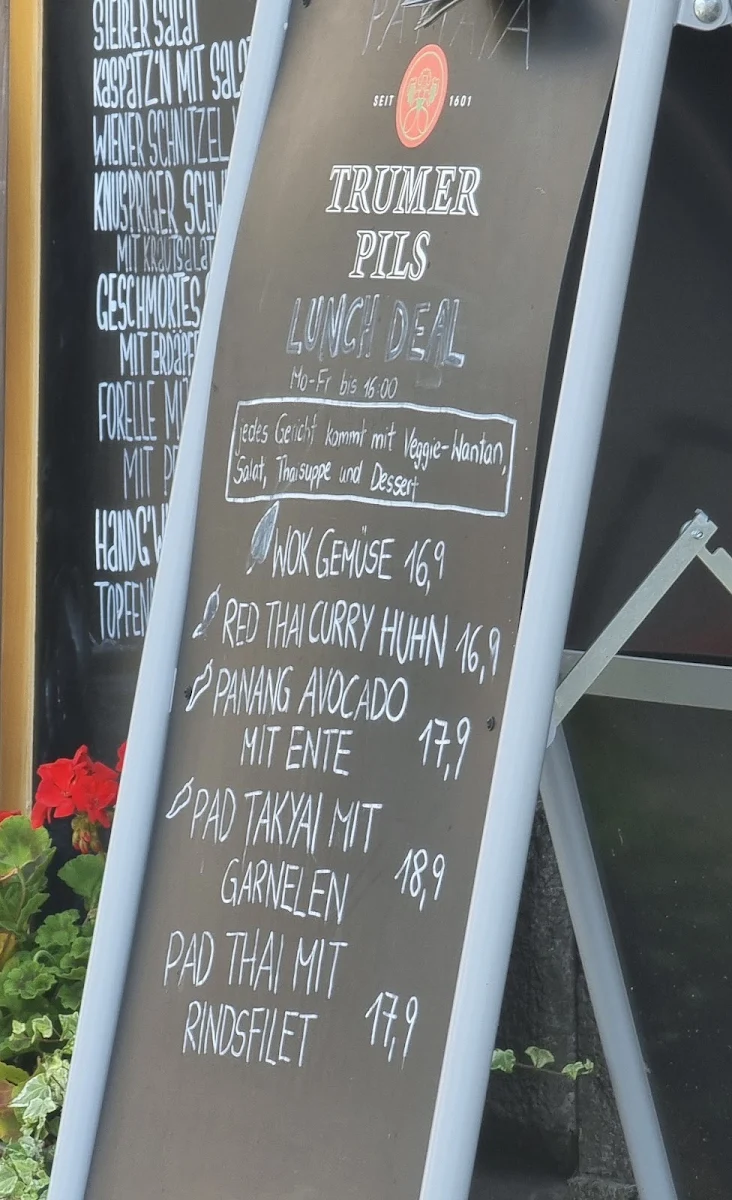 STEIRER SALAT
KASPATZ'N MIT SALAT
WIENER SCHNITZEL
KNUSPRIGER
MIT KRAUTSALAT
GESCHMORTES
MIT
FORELLE
MIT
TOPFEN
PATTAYA
SEIT 1601
TRUMER
PILS
LUNCH DEAL
Mo-Fr bis 16:00
jedes Gericht kommt mit Veggie-Wantan,
Salat, Thaisuppe und Dessert
WOK GEMÜSE 16,9
RED THAI CURRY HUHN 16,9
PANANG AVOCADO
MIT ENTE 17,9
PAD TAKYAI MIT
GARNELEN 18,9
PAD THAI MIT
RINDSFILET 17,9